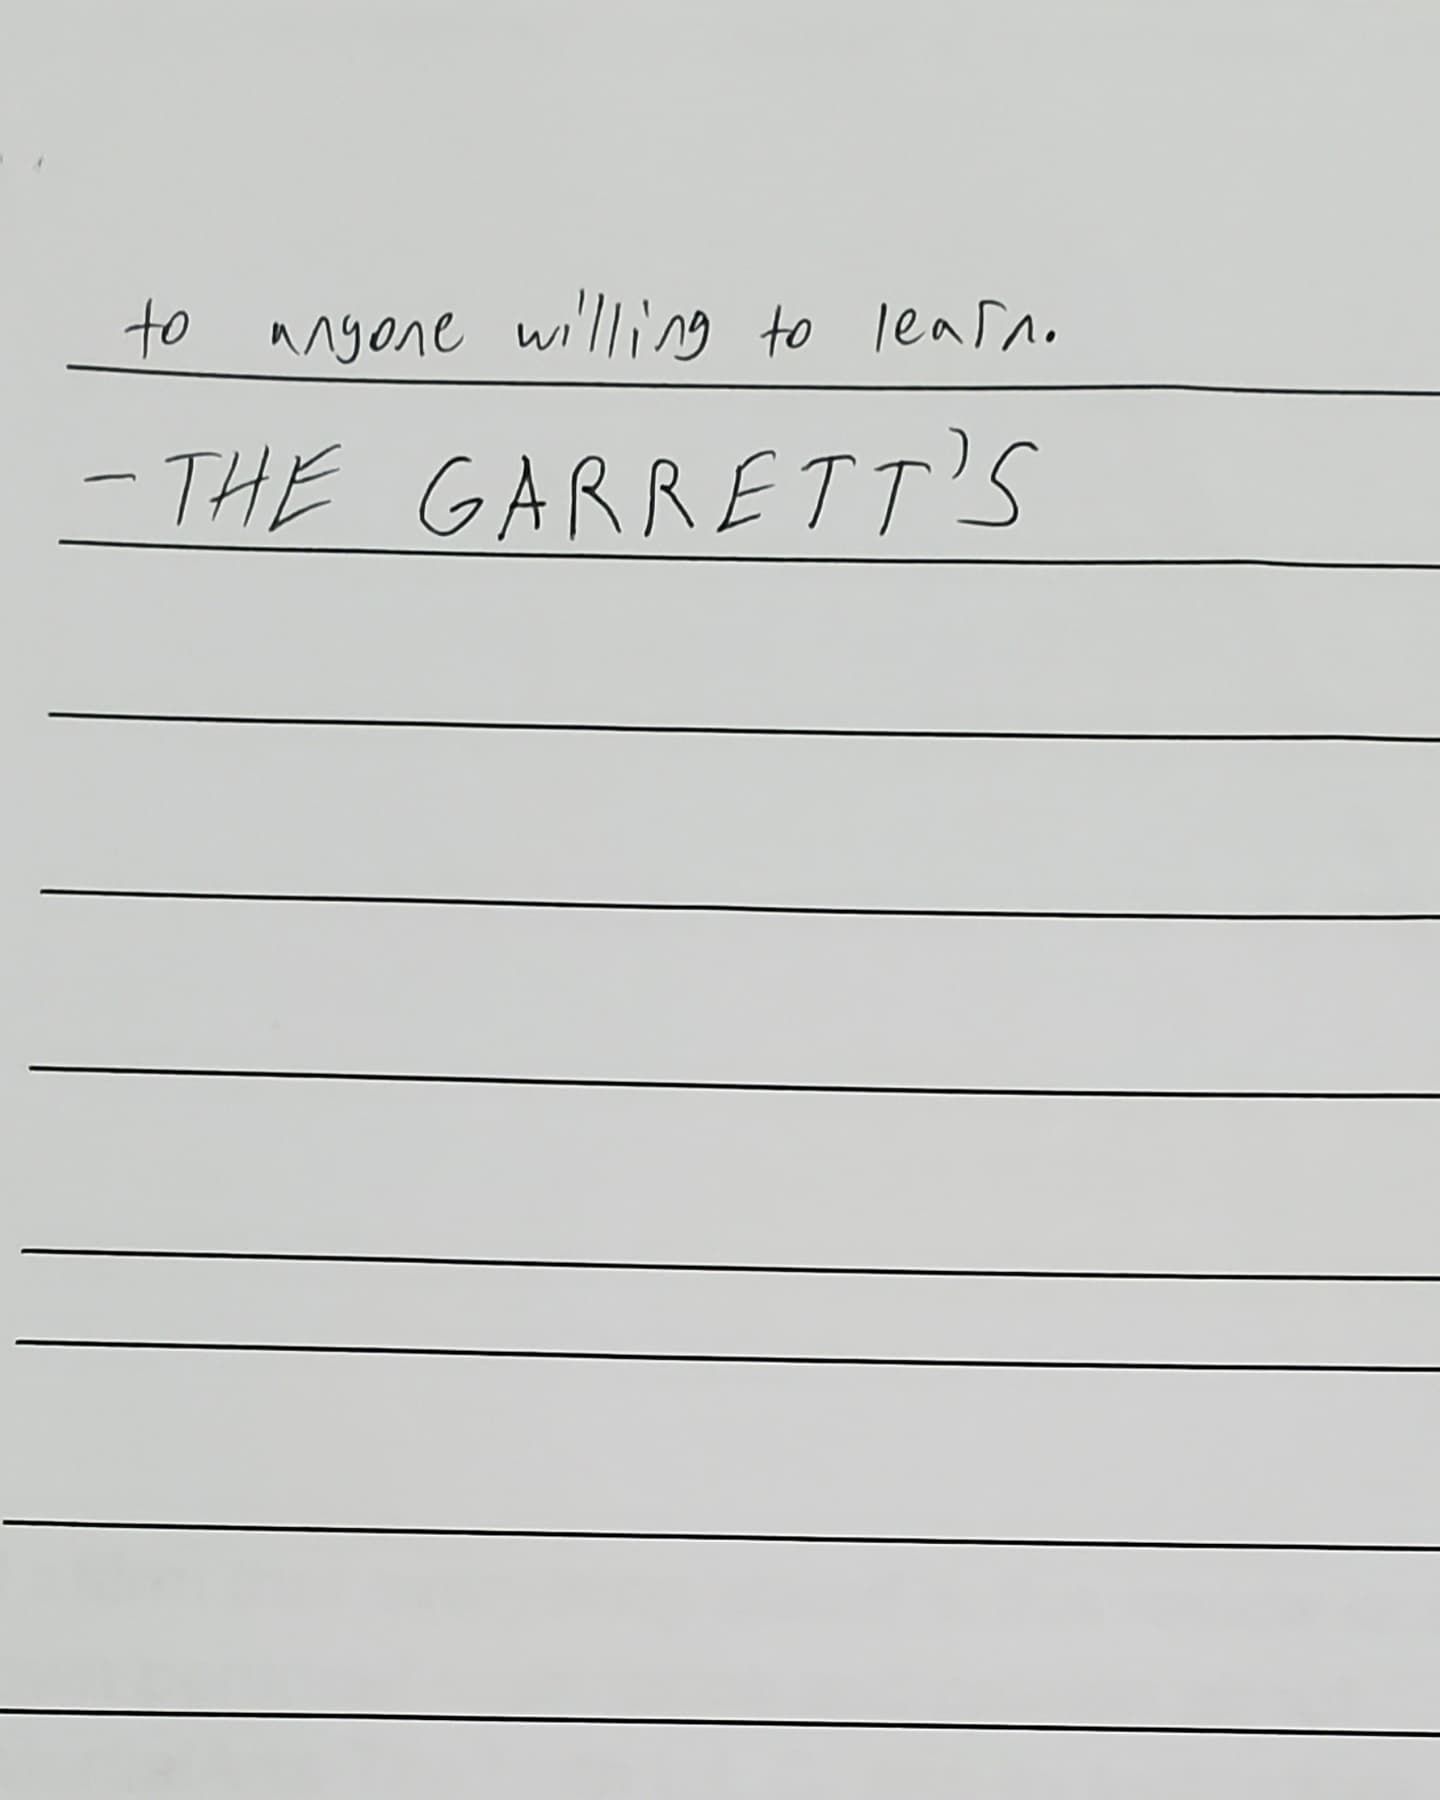 to anyone willing to learn.
- THE GARRETT'S